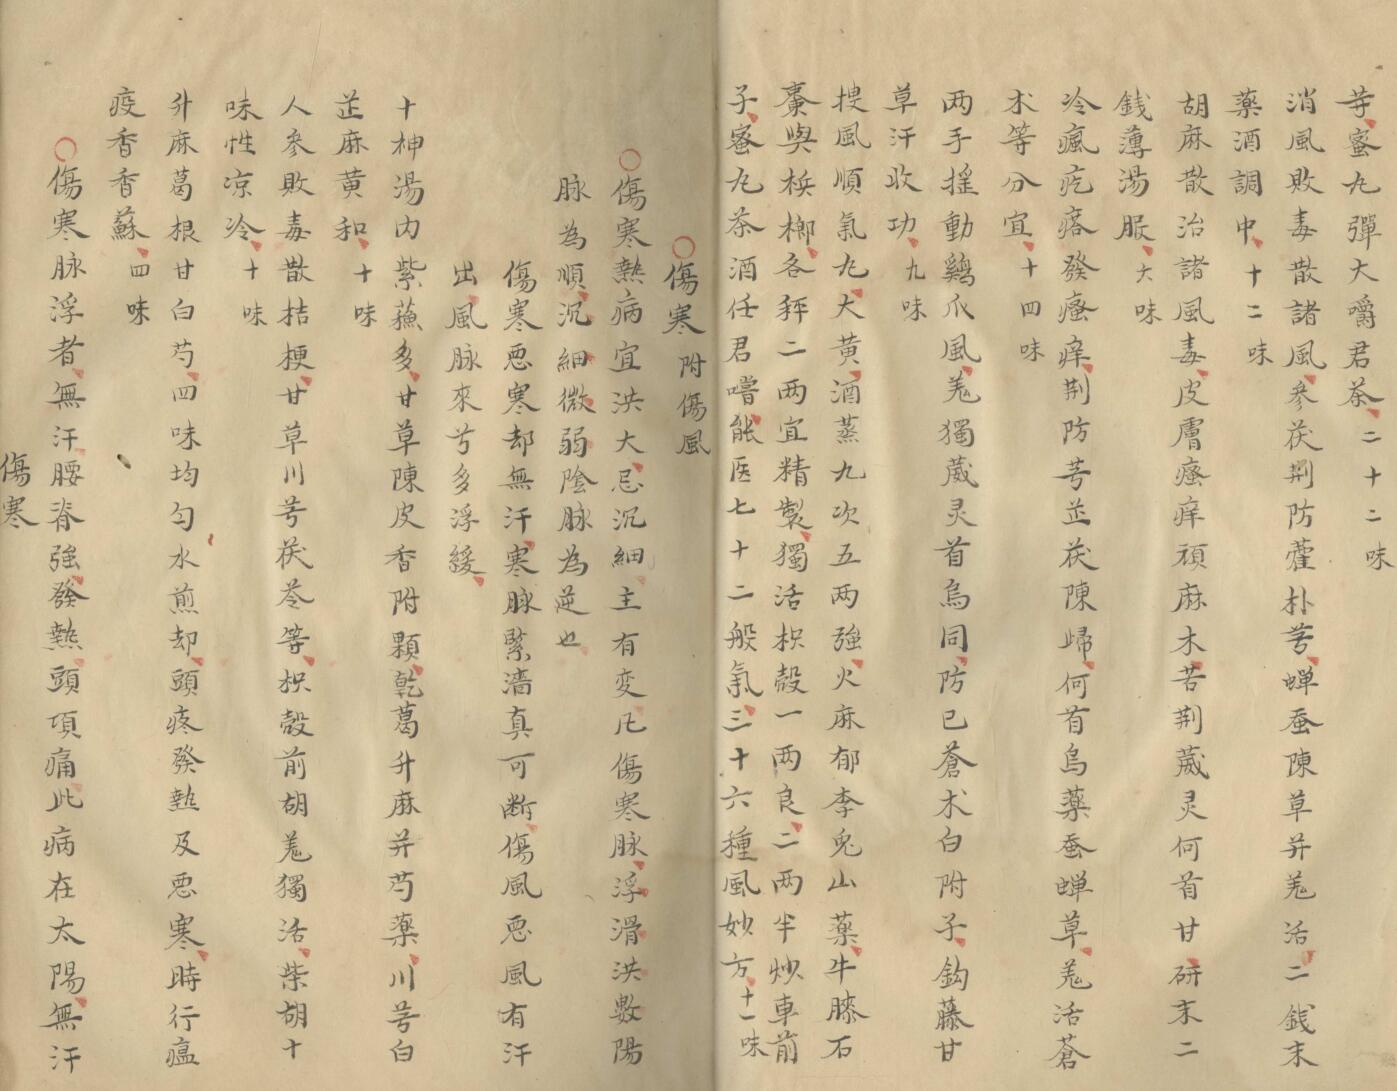 芽蜜丸彈大嚼君茶二十二味
消風敗毒散諸風參茯荆防藿朴芎蟬蚕陳草并羗活二銭末
藥酒調中十二味
胡麻散治諸風毒皮膚瘙痒頑麻木苦荆葳灵何首甘研末二
銭薄湯服六味
冷瘋疙瘩發瘙痒荆防芎芷茯陳歸何首烏藥蚕蟬草羗活蒼
术等分宜十四味
两手摇動鷄爪風羗獨葳灵首烏同防已蒼术白附子鈎藤甘
草汗收功九味
搜風順氣丸大黄酒蒸九次五两強火麻郁李兎山藥牛膝石
棗與梹榔各秤二两宜精製獨活枳殻一两良二两半炒車前
子蜜丸茶酒任君嚐能医七十二般氣三十六種風妙方十一味
○傷寒附傷風
○傷寒熱病宜洪大忌沉細主有变凡傷寒脉浮滑洪數陽
脉為順沉細微弱陰脉為逆也
傷寒悪寒却無汗寒脉緊濇真可断傷風悪風有汗
出風脉來兮多浮緩
十神湯内紫蘓多甘草陳皮香附顆乾葛升麻并芍藥川芎白
芷麻黄和十味
人參敗毒散桔梗甘草川芎茯苓等枳殻前胡羗獨活柴胡十
味性凉冷十味
升麻葛根甘白芍四味均匀水煎却頭疼發熱及悪寒時行瘟
疫香香蘇四味
○傷寒脉浮者無汗腰脊強發熱頭項痛此病在太陽無汗
傷寒